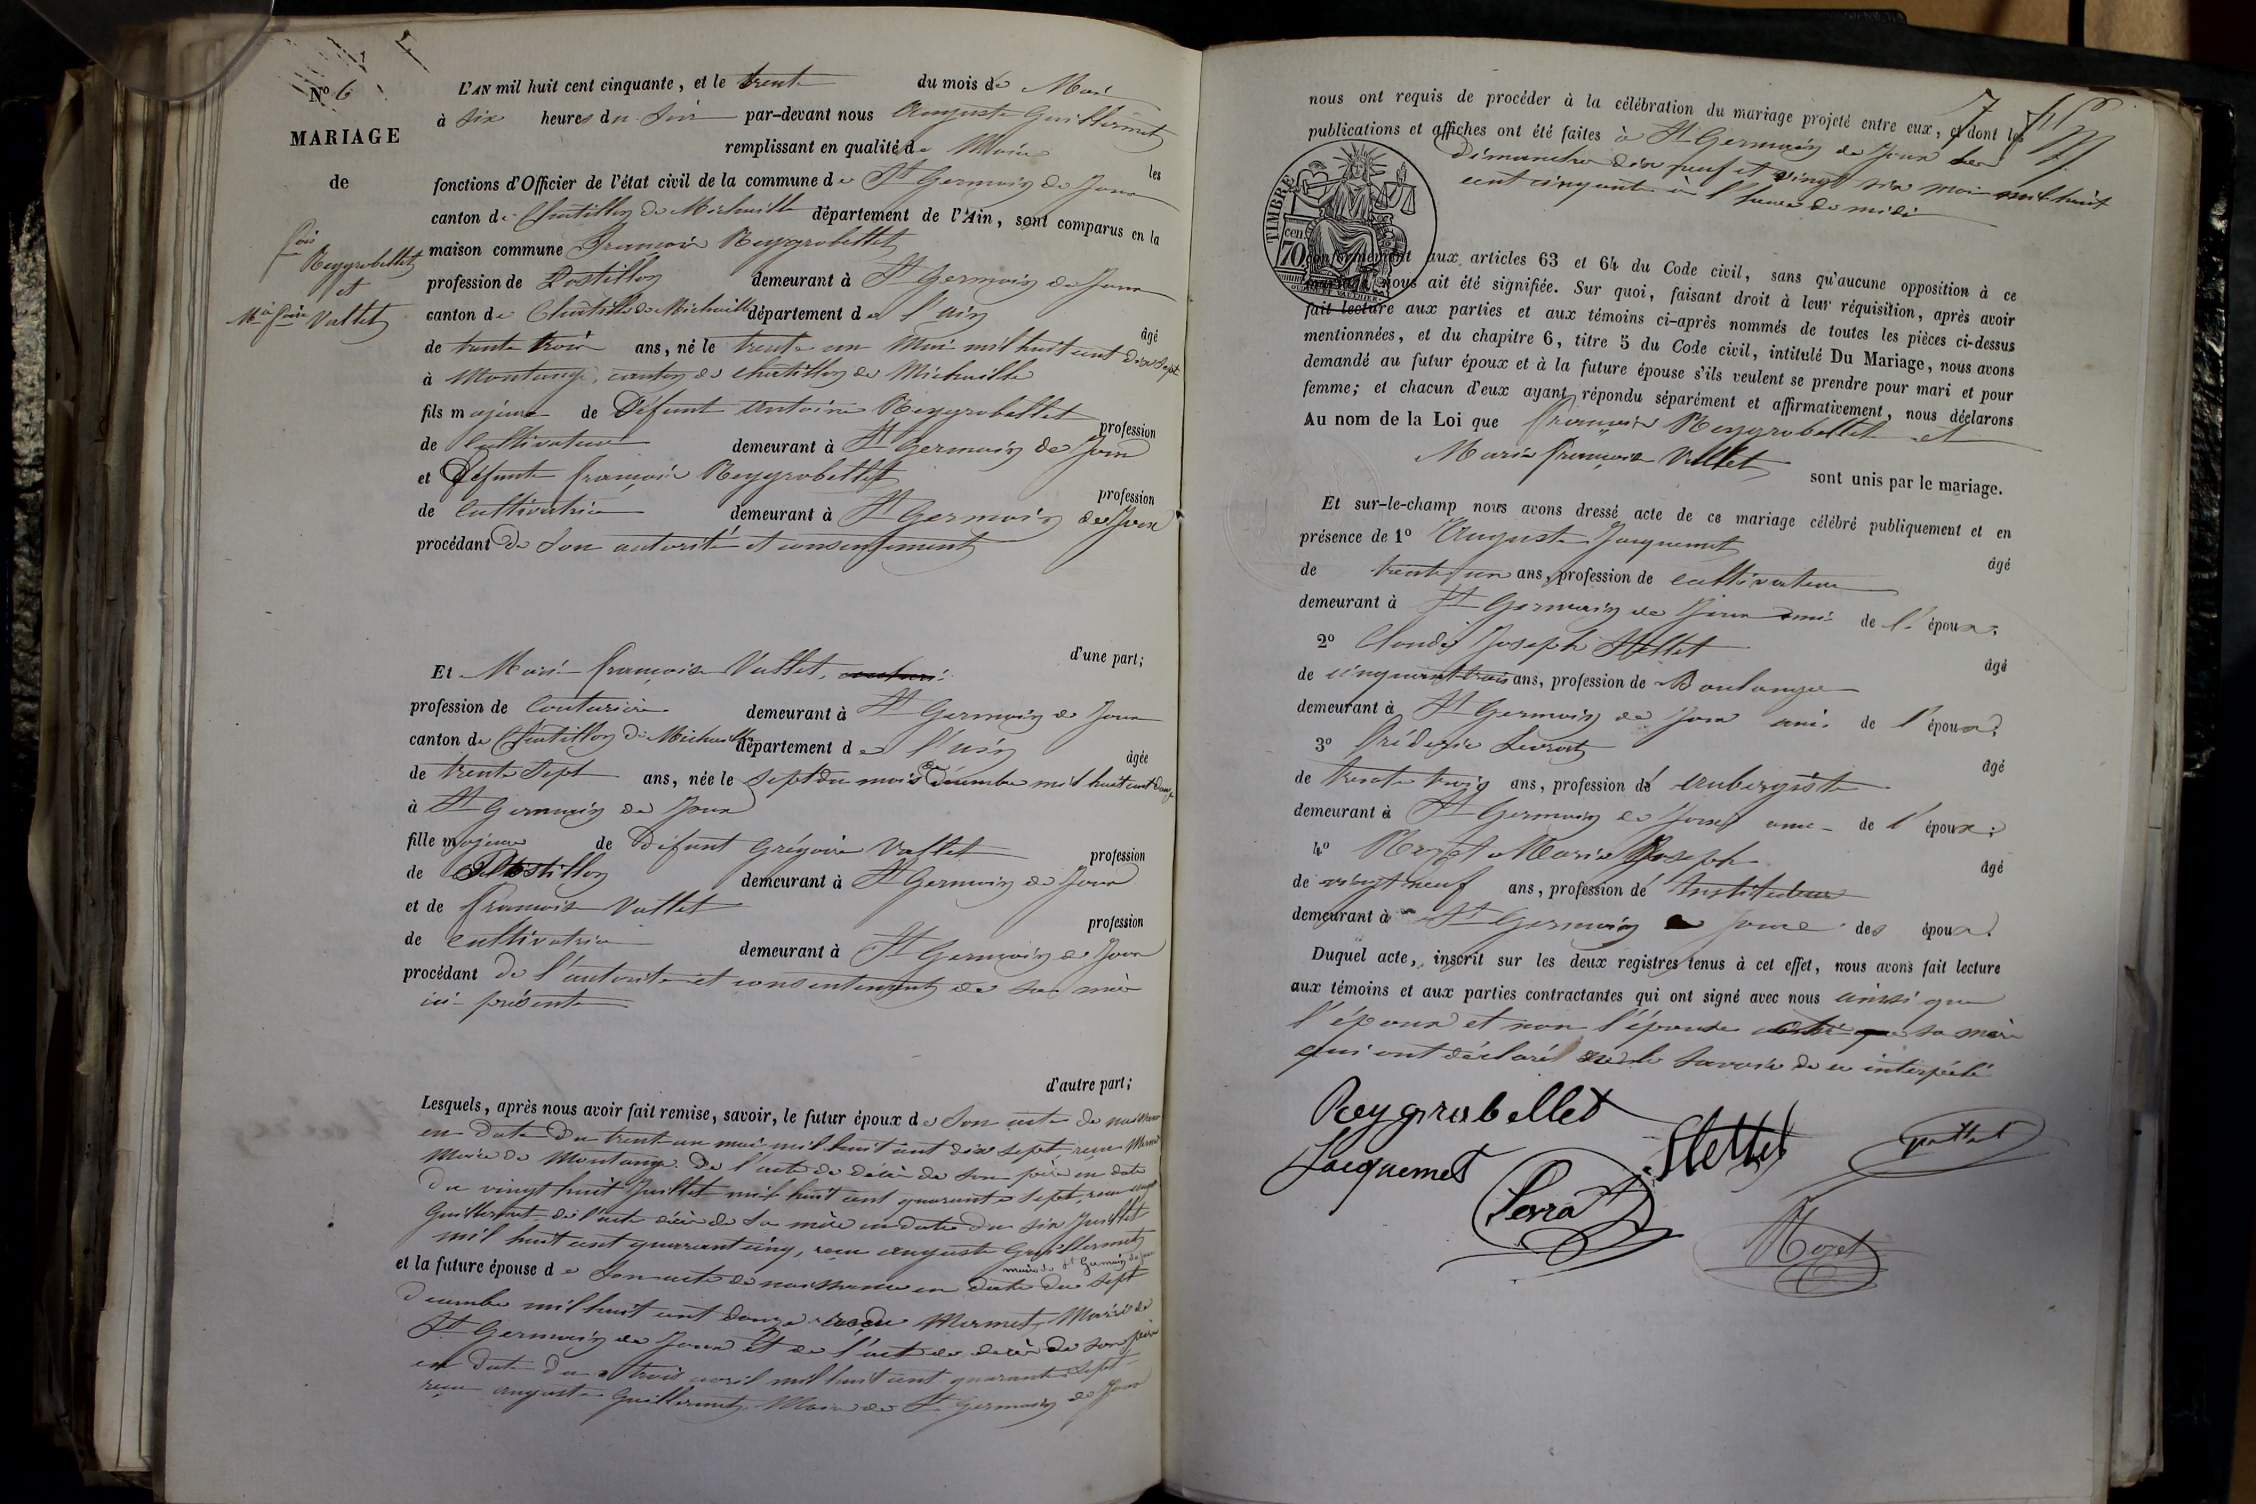 N° 6
MARIAGE
de
fois
Reygrobellet
et
Mie foise Vallet
L'AN mil huit cent cinquante, et le trente du mois de Mai
à six heures du soir par-devant nous Auguste Guillermet
remplissant en qualité de Maire les
fonctions d'Officier de l'état civil de la commune de St Germain de Joux
canton de Chatillon de Michaille département de l'Ain, sont comparus en la
maison commune François Reygrobellet
profession de Postillon demeurant à St Germain de Joux
canton de Chatillon de Michaille département de l'ain
âgé
de trente trois ans, né le trente un Mai mil huit cent dix sept
à Montange, canton de Chatillon de Michaille
fils majeur de Défunt Antoine Reygrobellet
profession
de Cultivateur demeurant à St Germain de Joux
et Défunte françoise Reygrobellet
profession
de Cultivatrice demeurant à St Germain de Joux
procédant de son autorité et consentement
d'une part;
Et Marie françoise Vallet,
profession de Couturière demeurant à St Germain de Joux
canton de Chatillon de Michaille département de l'ain
âgée
de trente sept ans, née le sept du mois de Décembre mil huit cent douze
à St Germain de Joux
fille majeure de Défunt Grégoire Vallet
profession
de Postillon demeurant à St Germain de Joux
et de françoise Vallet
profession
de cultivatrice demeurant à St Germain de Joux
procédant de l'autorité et consentement de sa mère
ici présente
d'autre part;
Lesquels, après nous avoir fait remise, savoir, le futur époux de son acte de naissance
en date du trente un mai mil huit cent dix sept, reçu Mermet
Maire de Montange. De l'acte de décès de son père en date
du vingt huit Juillet mil huit cent quarante sept, reçu auguste
Guillermet, de l'acte décès de sa mère en date du six Juillet
mil huit cent quarante cinq, reçu auguste Guillermet
maire de St Germain de Joux
et la future épouse de son acte de naissance en date du sept
décembre mil huit cent douze reçu Mermet, Maire de
St Germain de Joux et de l'acte de décès de son père
en date du trois avril mil huit cent quarante sept
reçu auguste Guillermet, Maire de St Germain de Joux
7
nous ont requis de procéder à la célébration du mariage projeté entre eux, et dont les
publications et affiches ont été faites à St Germain de Joux les
dimanches dix neuf et vingt six mai mil huit
cent cinquante à l'heure de midi
TIMBRE
cen.
70
conformément aux articles 63 et 64 du Code civil, sans qu'aucune opposition à ce
mariage nous ait été signifiée. Sur quoi, faisant droit à leur réquisition, après avoir
fait lecture aux parties et aux témoins ci-après nommés de toutes les pièces ci-dessus
mentionnées, et du chapitre 6, titre 5 du Code civil, intitulé Du Mariage, nous avons
demandé au futur époux et à la future épouse s'ils veulent se prendre pour mari et pour
femme; et chacun d'eux ayant répondu séparément et affirmativement, nous déclarons
Au nom de la Loi que françois Reygrobellet et
Marie françoise Vallet sont unis par le mariage.
Et sur-le-champ nous avons dressé acte de ce mariage célébré publiquement et en
présence de 1° Auguste Jacquemet
âgé
de trente un ans, profession de cultivateur
demeurant à St Germain de Joux ami de l'époux;
2° Claude Joseph Stettet
âgé
de cinquante trois ans, profession de Boulanger
demeurant à St Germain de Joux ami de l'époux;
3° fréderic Serrat
âgé
de trente trois ans, profession de aubergiste
demeurant à St Germain de Joux ami de l'époux;
4° Rozet Marie Joseph
âgé
de vingt neuf ans, profession de Instituteur
demeurant à St Germain de Joux des époux.
Duquel acte, inscrit sur les deux registres tenus à cet effet, nous avons fait lecture
aux témoins et aux parties contractantes qui ont signé avec nous ainsi que
l'époux et non l'épouse sa mère
qui ont déclaré ne le savoir de ce interpélé
Reygrobellet
Jacquemet
Stettet
Serrat
Rozet